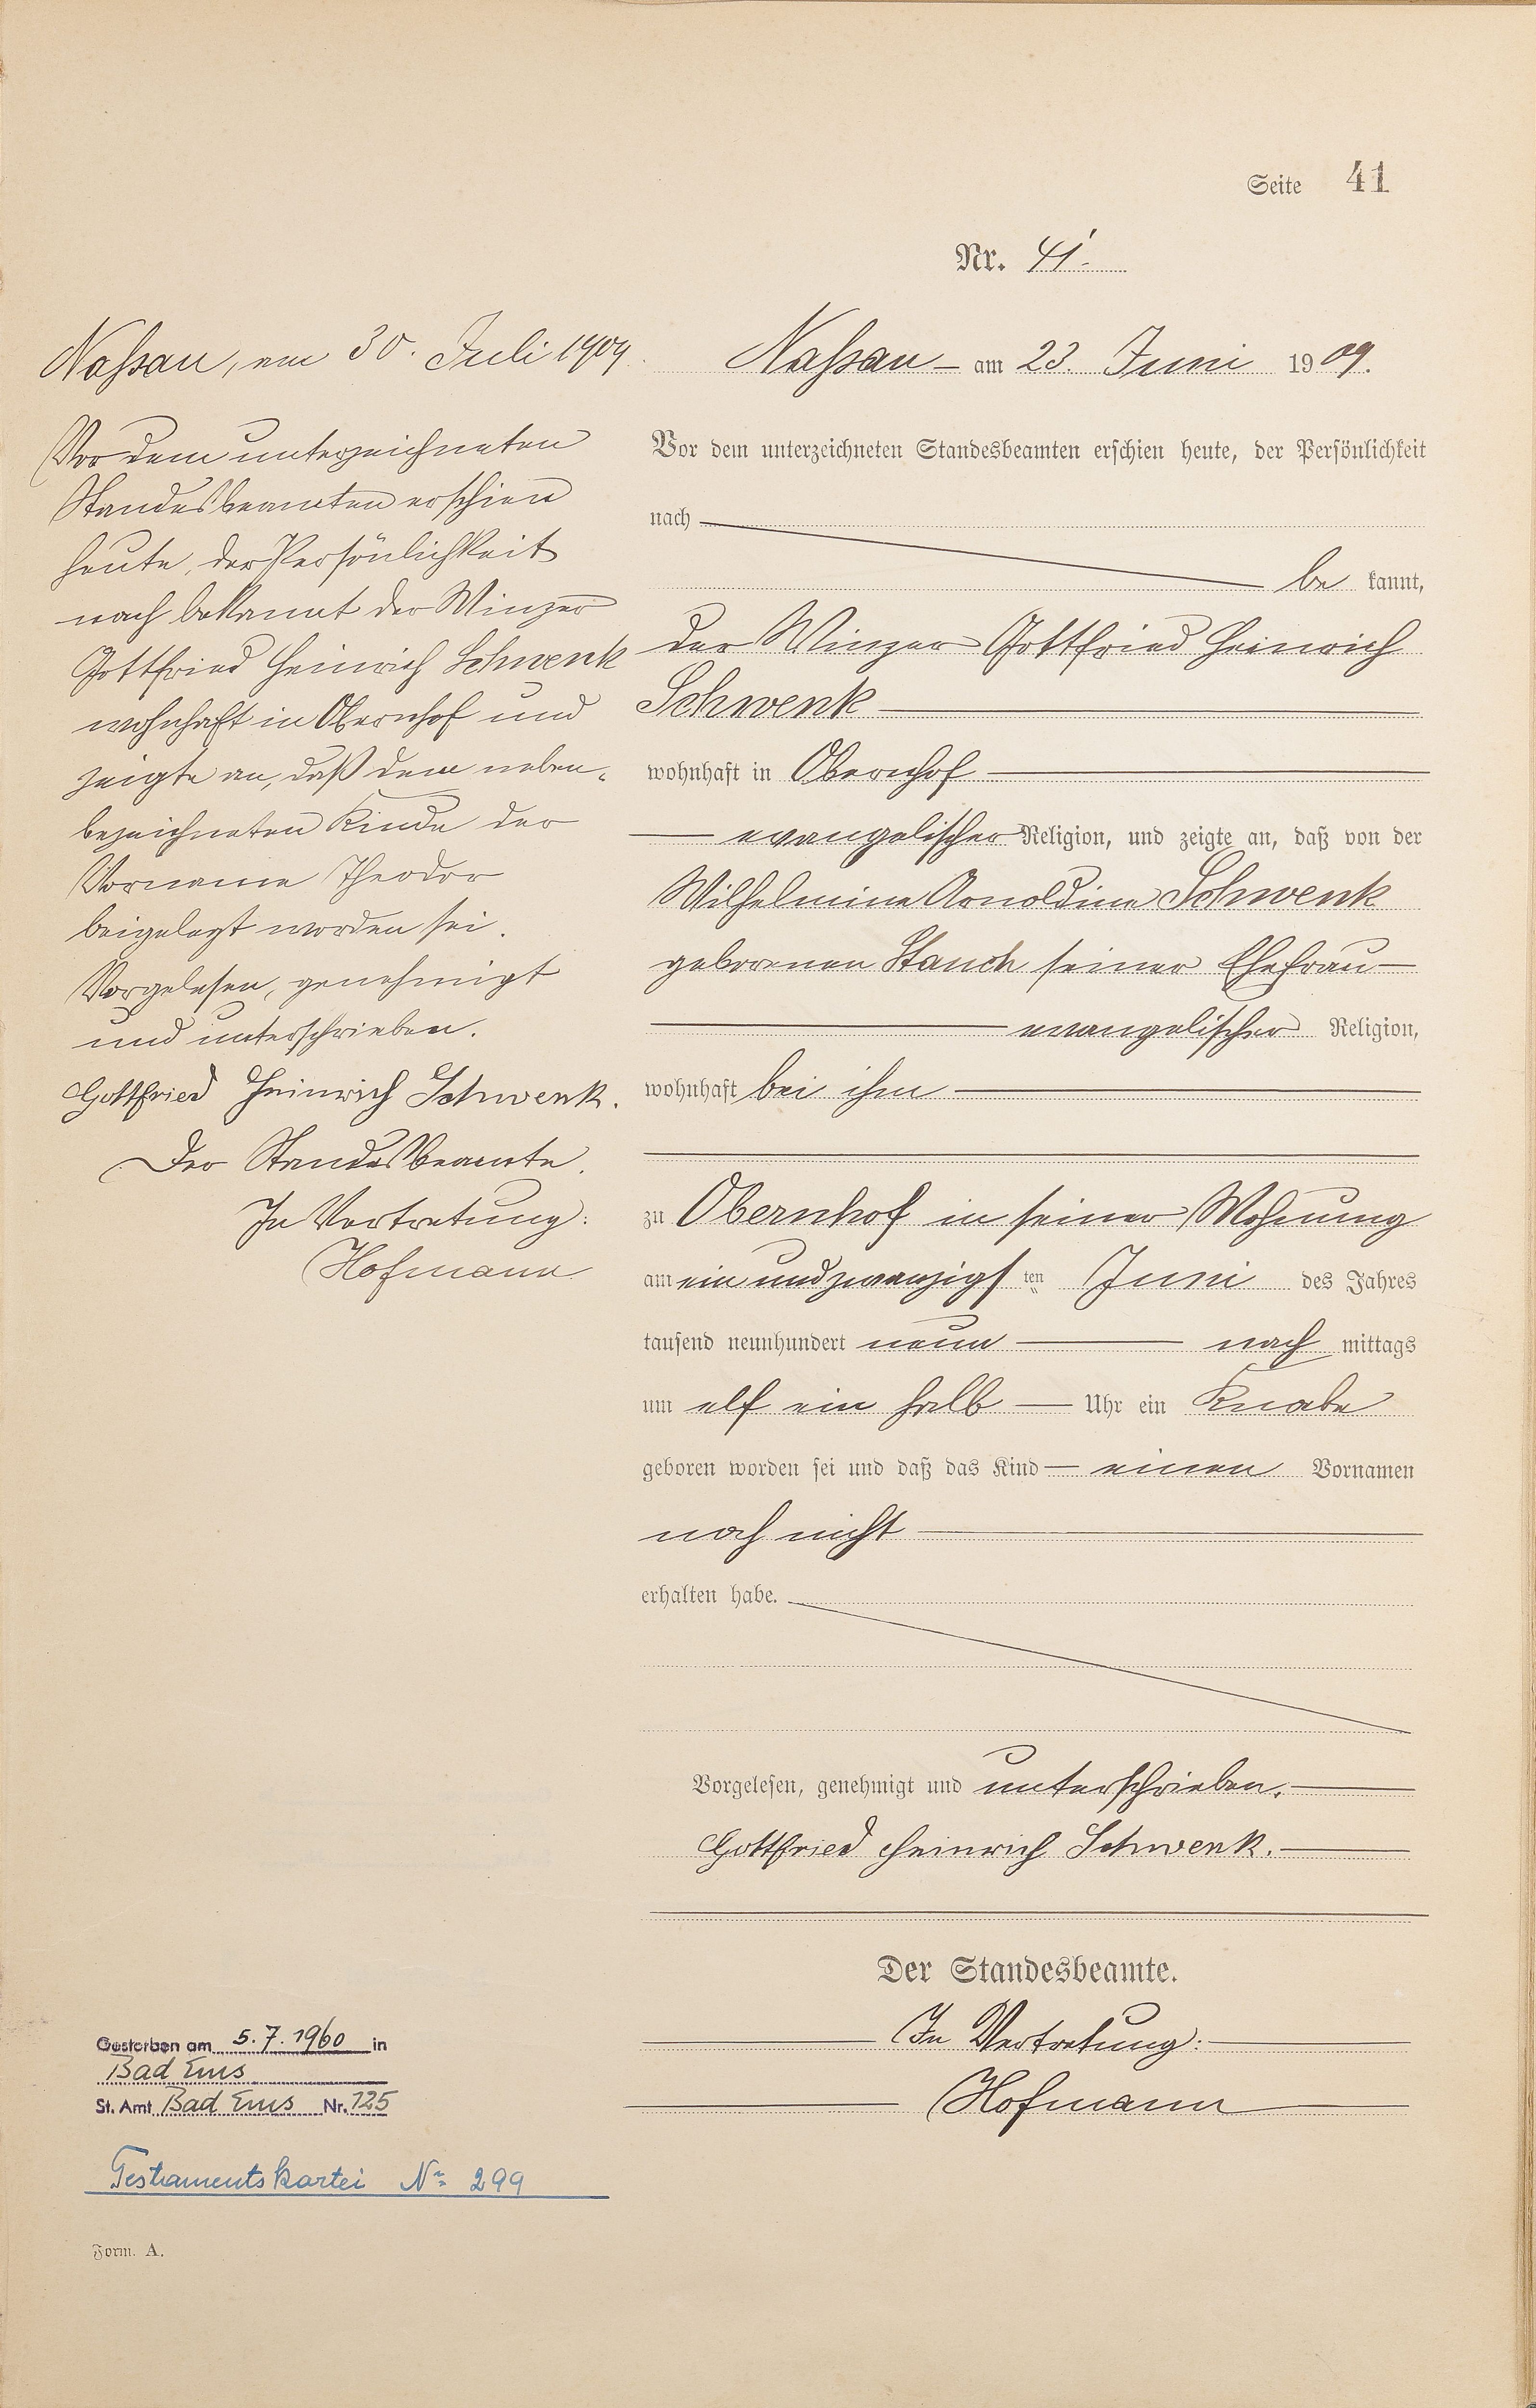 Seite 41
Nr. 41.
Nassau, am 30. Juli 1909.
Vor dem unterzeichneten
Standesbeamten erschien
heute, der Persönlichkeit
nach bekannt der Winzer
Gottfried Heinrich Schwenk
wohnhaft in Obernhof und
zeigte an, daß dem neben-
bezeichneten Kinde der
Vorname Theodor
beigelegt worden sei.
Vorgelesen, genehmigt
und unterschrieben.
Gottfried Heinrich Schwenk.
Der Standesbeamte.
In Vertretung:
Hofmann
Gestorben am 5.7.1960 in
Bad Ems
St. Amt Bad Ems Nr. 125
Testamentskartei No 299
Form. A.
Nassau am 23. Juni 1909.
Vor dem unterzeichneten Standesbeamten erschien heute, der Persönlichkeit
nach
be kannt,
der Winzer Gottfried Heinrich
Schwenk
wohnhaft in Obernhof
evangelischer Religion, und zeigte an, daß von der
Wilhelmine Arnoldine Schwenk
geborenen Stauch seiner Ehefrau
evangelischer Religion,
wohnhaft bei ihm
zu Obernhof in seiner Wohnung
am ein und zwanzigsten Juni des Jahres
tausend neunhundert neun nach mittags
um elf ein halb Uhr ein Knabe
geboren worden sei und daß das Kind einen Vornamen
noch nicht
erhalten habe.
Vorgelesen, genehmigt und unterschrieben.
Gottfried Heinrich Schwenk.
Der Standesbeamte.
In Vertretung:
Hofmann